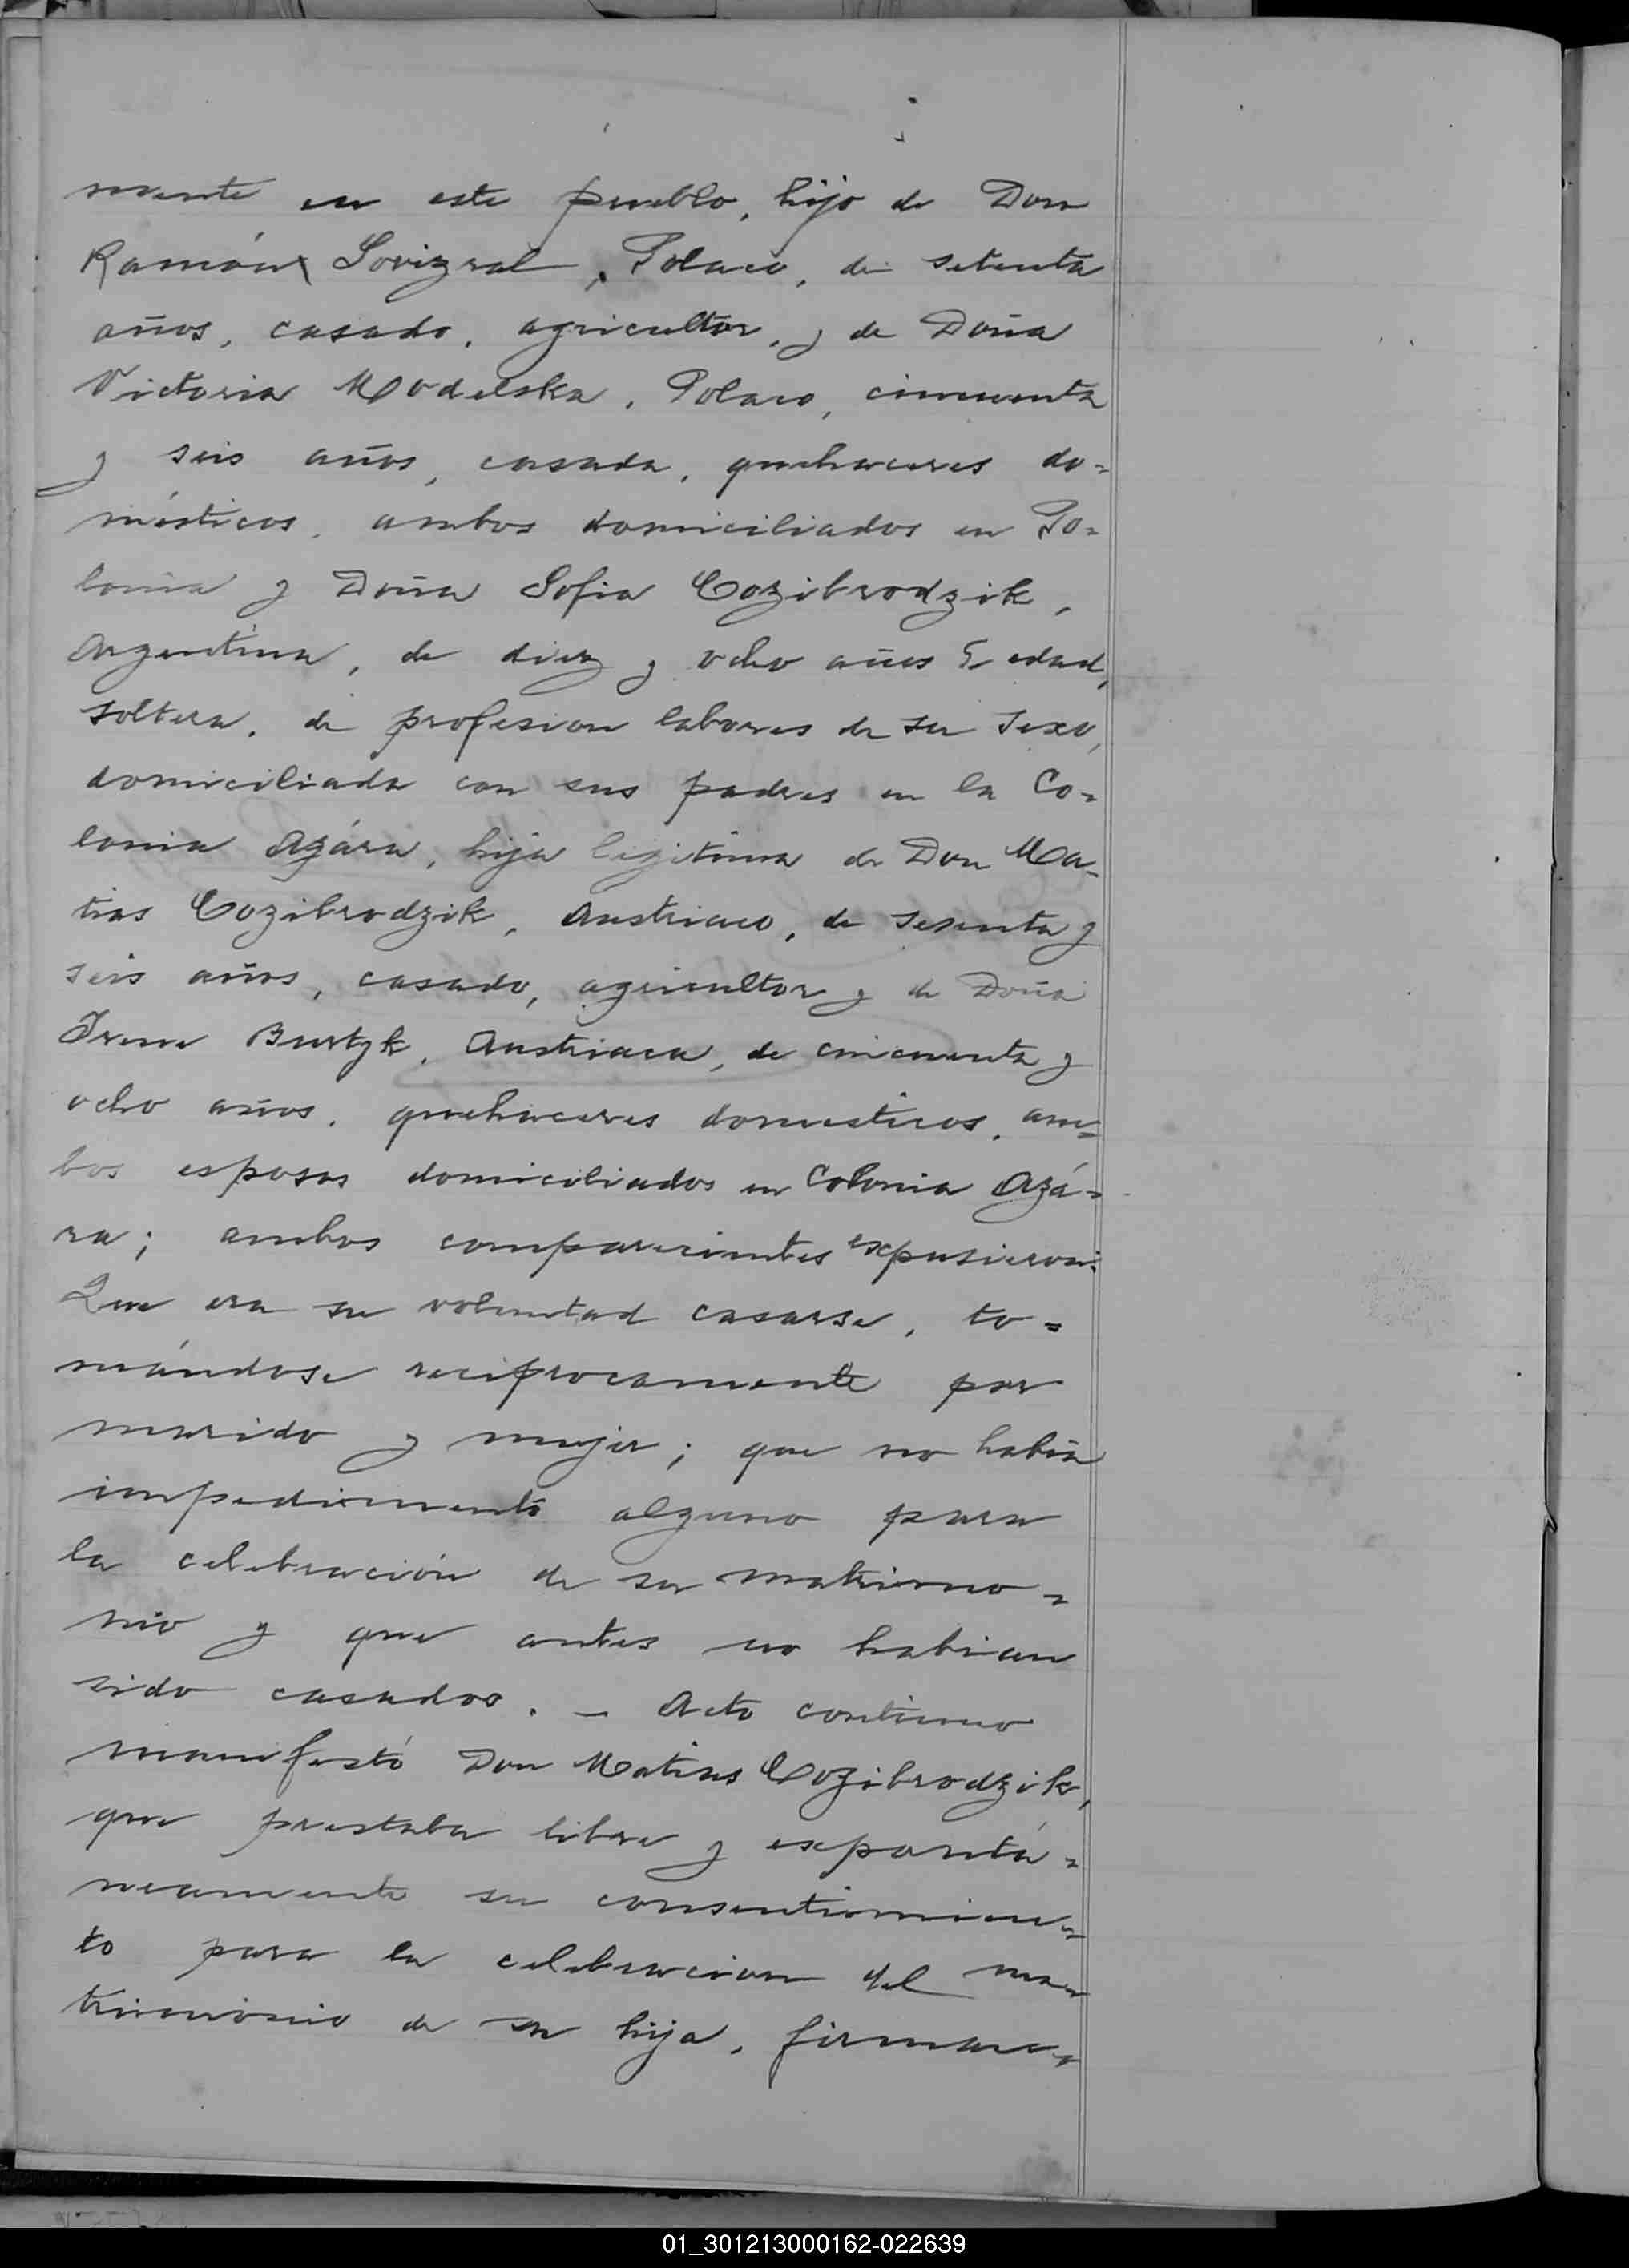 mente en este pueblo, hijo de Don
Ramón Sovizral, Polaco, de setenta
años, casado, agricultor, y de Doña
Victoria Modelska, Polaca, cincuenta
y seis años, casada, quehaceres do=
mésticos, ambos domiciliados en Po=
lonia y Doña Sofia Cozibrodzik,
Argentina, de diez y ocho años de edad,
soltera, de profesion labores de su sexo,
domiciliada con sus padres en la Co=
lonia Azára, hija legitima de Don Ma=
tias Cozibrodzik, Austriaco, de sesenta y
seis años, casado, agricultor y de Doña
Irene Burtyk, Austriaca, de cincuenta y
ocho años, quehaceres domesticos, am=
bos esposos domiciliados en Colonia Azá=
ra; ambos comparecientes expusieron:
Que era su voluntad casarse, to=
mándose reciprocamente por
marido y mujer; que no habia
impedimento alguno para
la celebración de su matrimo=
nio y que antes no habian
sido casados. - Acto continuo
manifestó Don Matias Cozibrodzik,
que prestaba libre y expontá=
neamente su consentimien=
to para la celebracion del ma=
trimonio de su hija, firman=
01_301213000162-022639